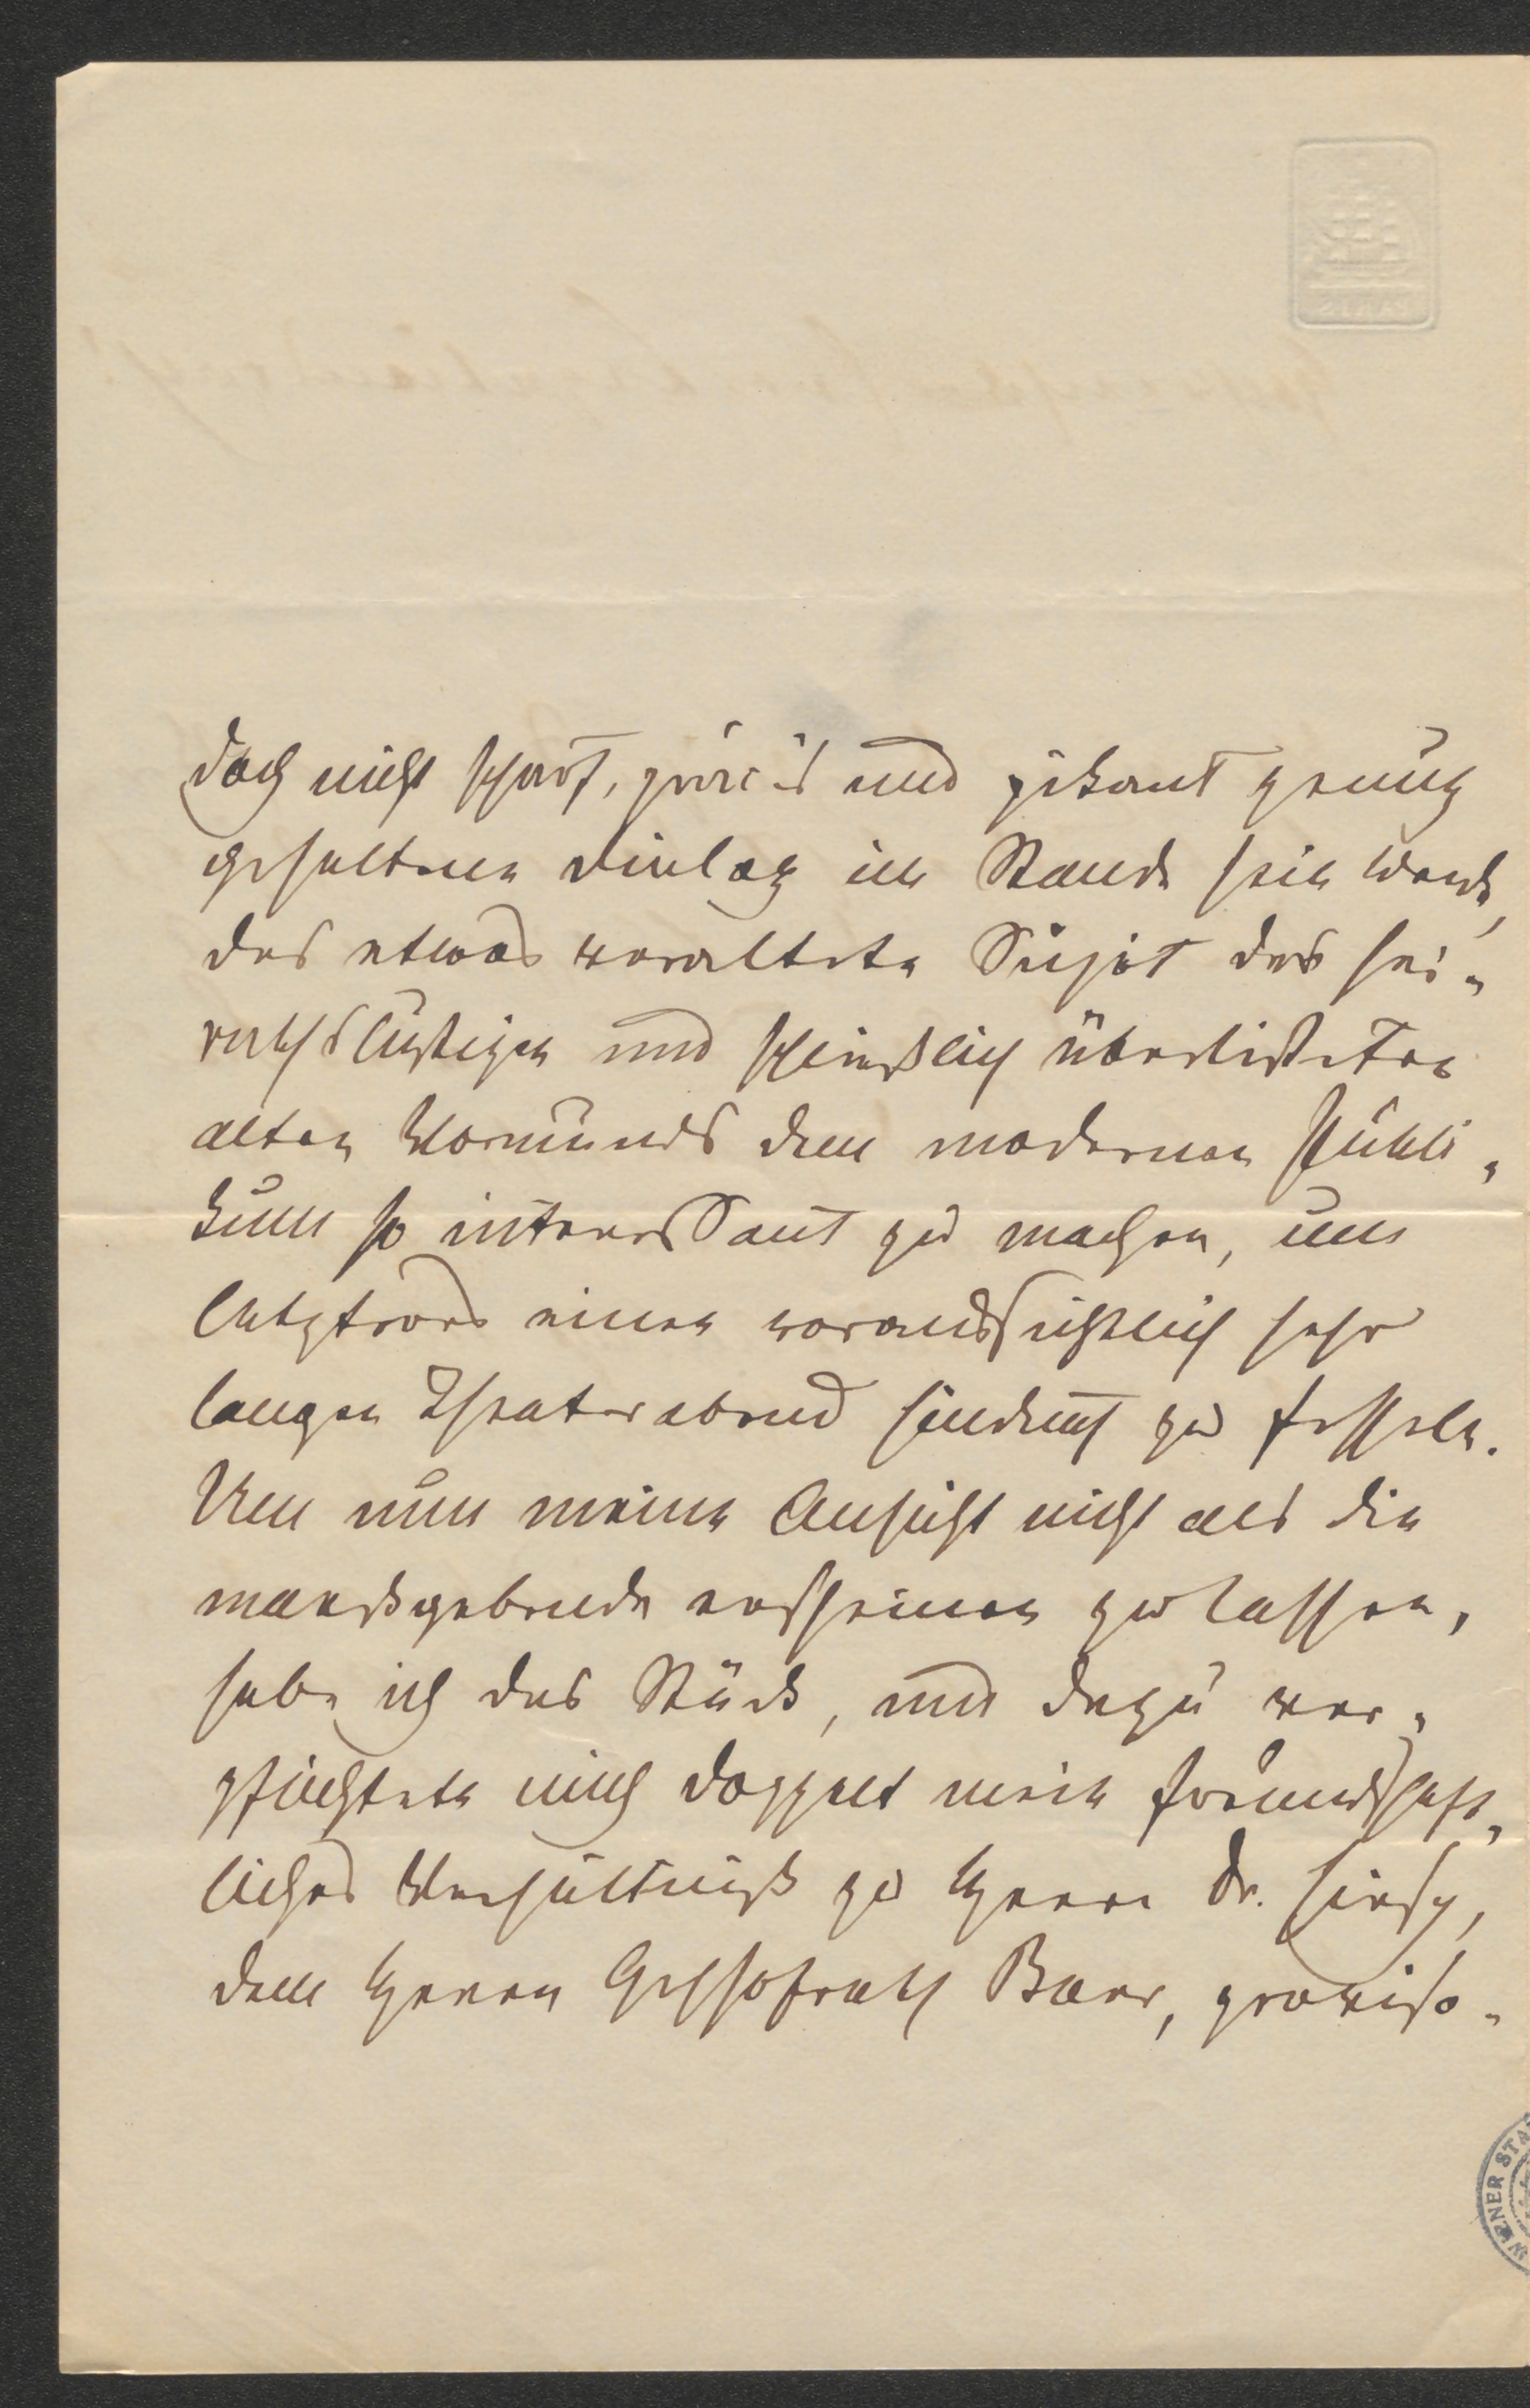 doch nicht scharf, präcis und pikant genug
gehaltene Dialog im Stande sein werde,
das etwas veraltete Sujet des hei-
rathslustigen und schließlich überlisteten
alten Vormunds dem modernen Publi-
kum so interessant zu machen, um
letzteres einen voraussichtlich sehr
langen Theaterabend hindurch zu fesseln.
Um nun meine Ansicht nicht als die
maaßgebende erscheinen zu lassen,
habe ich das Stück, und dazu ver-
pflichtete mich doppelt mein freundschaft-
liches Verhältniß zu Herrn Dr. Hirsch,
dem Herrn Gehhofrath Baer, proviso-
WIENER STA